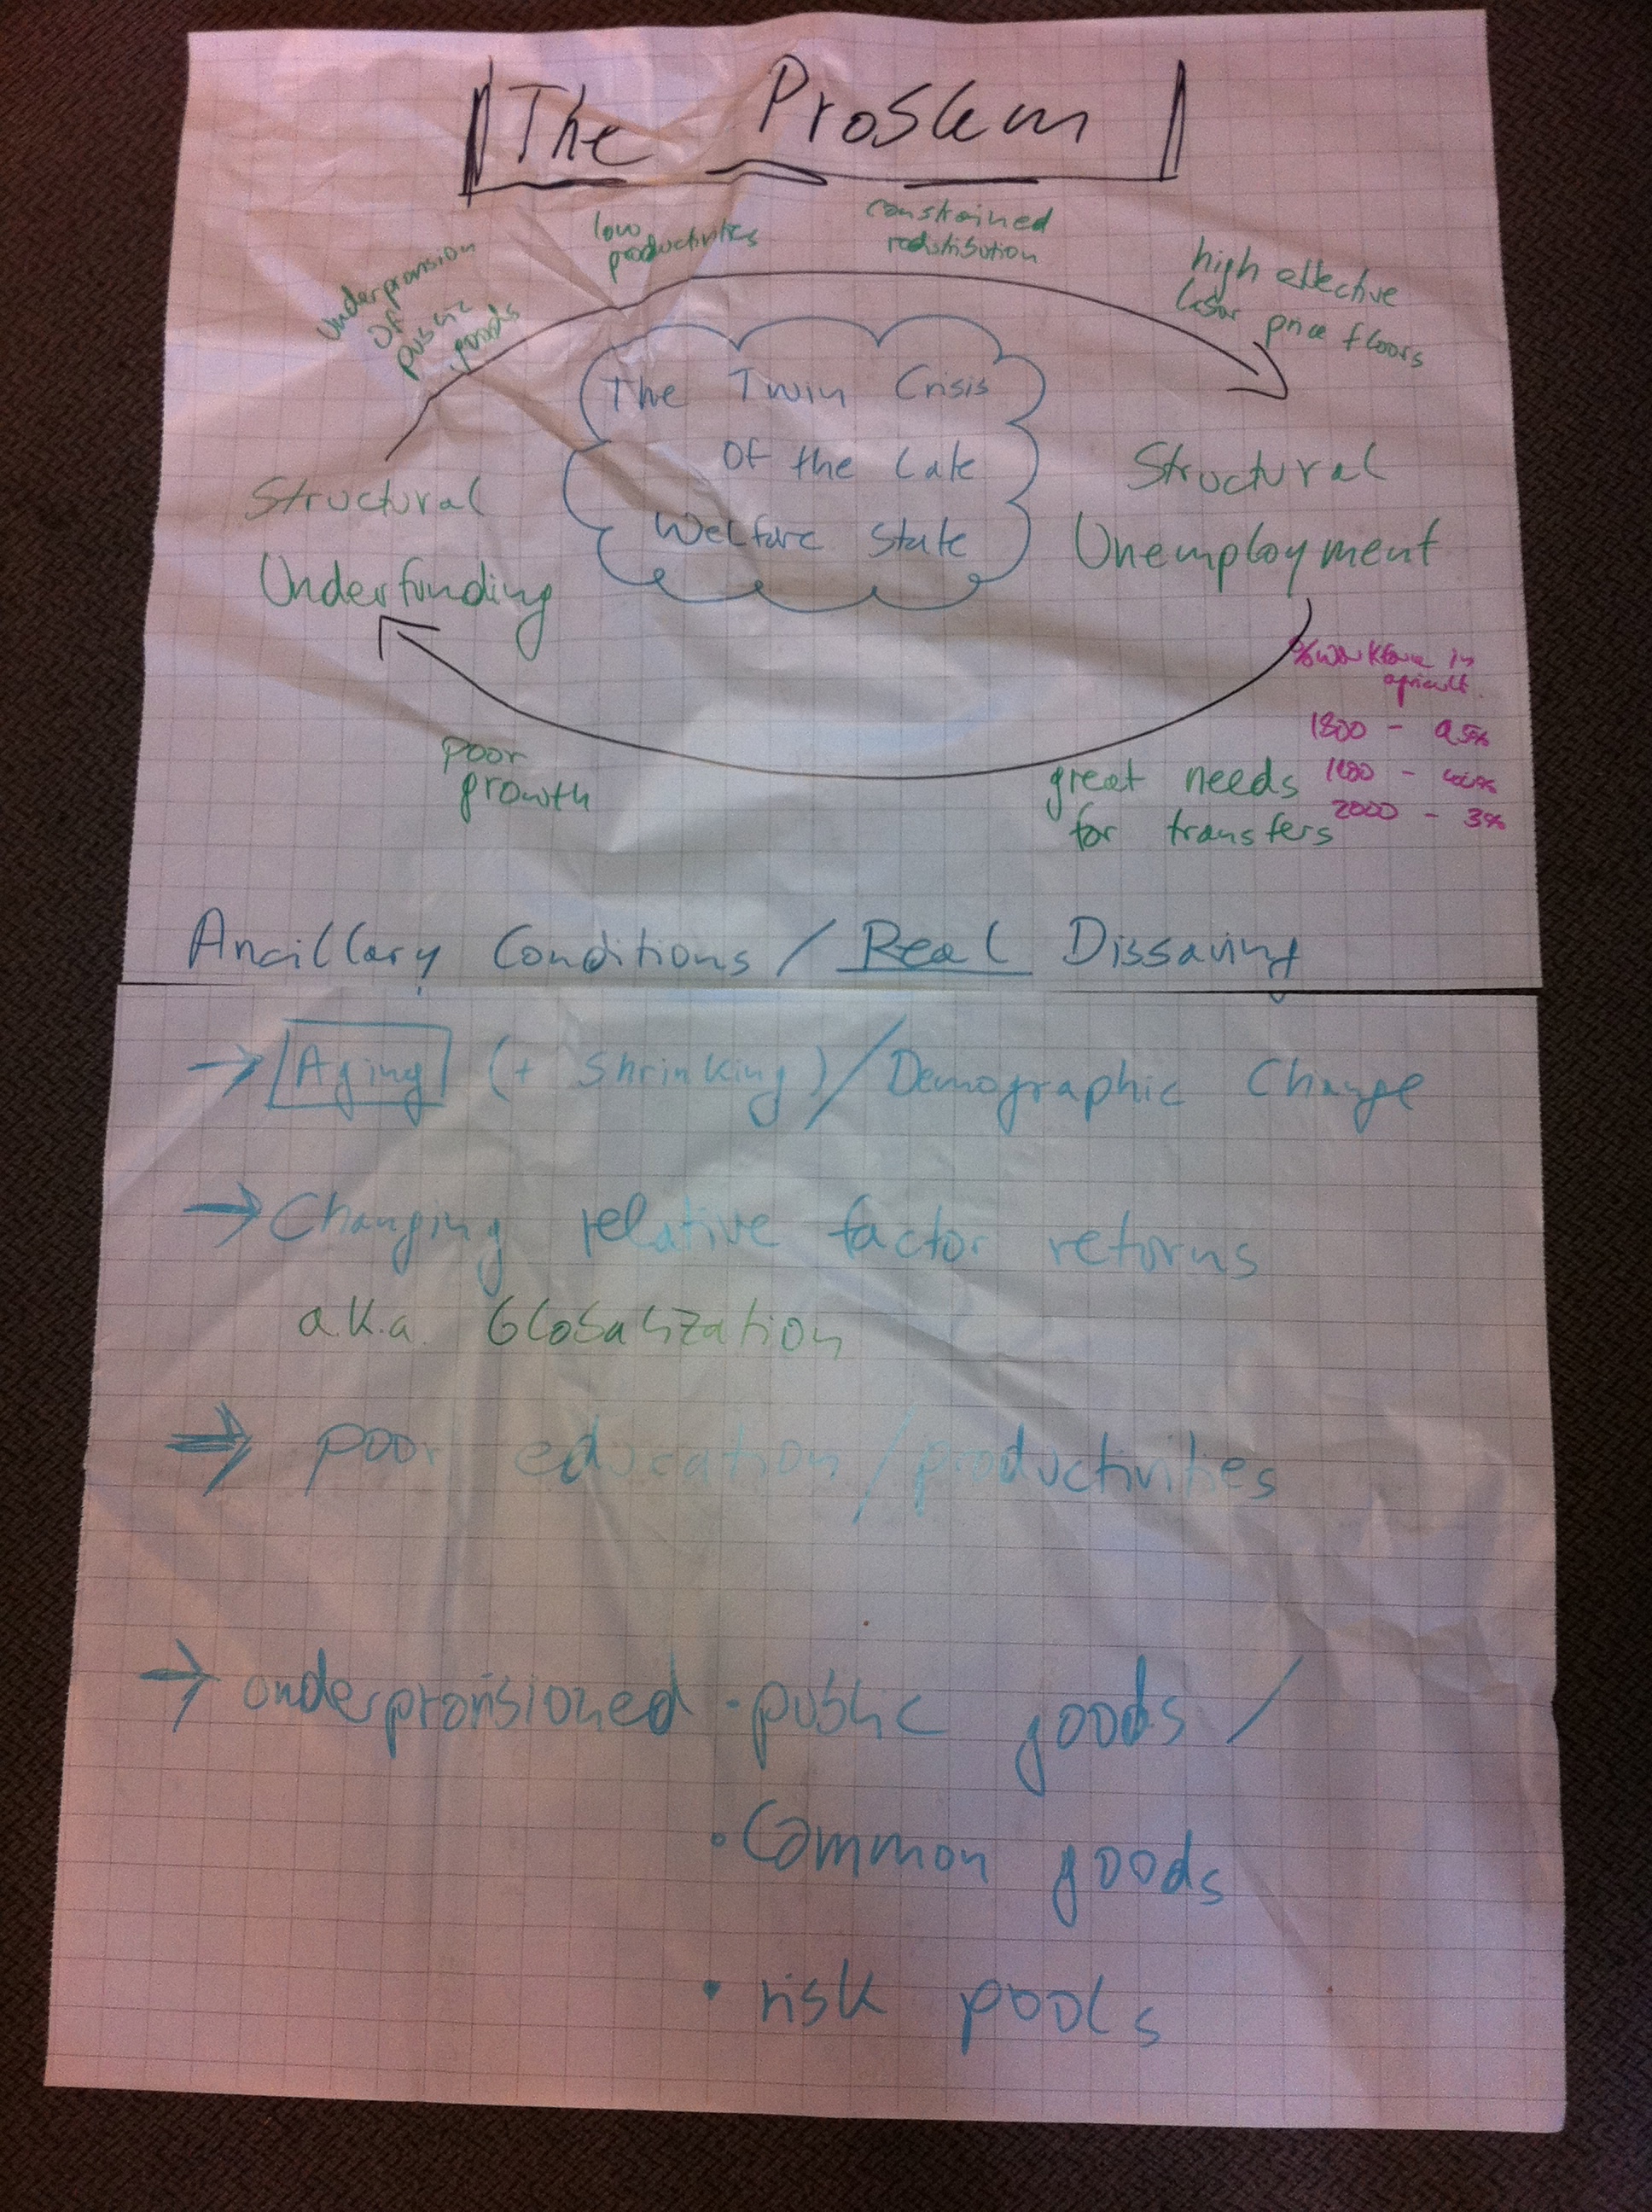 The Problem
Underprovision
of
public
goods
low
productivities
constrained
redistribution
high effective
labor price floors
The Twin Crisis
Of the Late
Welfare State
Structural
Underfunding
Structural
Unemployment
% workforce in
agricult.
1800 - 95%
- 40%
2000 - 3%
poor
growth
great needs
for transfers
Ancillary Conditions / Real Dissaving
→ Aging (+ Shrinking) / Demographic Change
→ Changing relative factor returns
a.k.a. Globalization
⇒ poor education / productivities
→ underprovisioned · public goods /
· Common goods
· risk pools